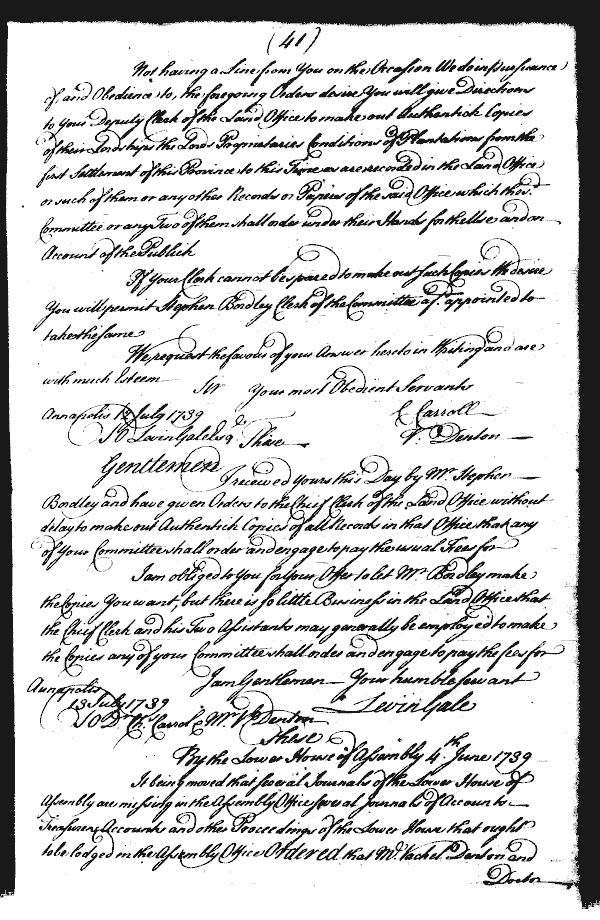 (41)
Not having a Line from You on the Occasion We do in Pursuance
of and Obedience to, the foregoing Orders desire You will give Directions
to Your Deputy Clerk of the Land Office to make out Authentick Copies
of their Lordships the Lords Proprietaries Conditions of Plantations from the
first Settlement of this Province to this Time as are recorded in the Land Office
or such of them or any other Records or Papers of the said Office which the sd
Committee or any Two of them shall order under their Hands for the Use and on
Account of the Publick
If Your Clerk cannot be spared to make out such Copies We desire
You will permit Stephen Bordley Clerk of the Committee as appointed to
take the same
We request the favour of your Answer hereto in Writing and are
with much Esteem Sir Your most Obedient Servants
Annapolis 12 July 1739 C Carroll
To Levin Gale Esqr. These V. Denton
Gentlemen
I received Yours this Day by Mr Stephen
Bordley and have given Orders to the Chief Clerk of the Land Office without
delay to make out Authentick Copies of all Records in that Office that any
of Your Committee shall order and engage to pay the usual Fees for
I am obliged to You for Your Offer to let Mr Bordley make
the Copies You want, but there is so little Business in the Land Office that
the Chief Clerk and his Two Assistants may generally be employed to make
the Copies any of your Committee shall order and engage to pay the fees for
I am Gentlemen Your humble servant
Annapolis
13 July 1739 Levin Gale
To Dr. Chs. Carrol & Mr. Vl Denton
These
By the Lower House of Assembly 4th June 1739
It being moved that several Journals of the Lower House of
Assembly are missing in the Assembly Office several Journals of Accounts
Treasurers Accounts and other Proceedings of the Lower House that ought
to be lodged in the Assembly Office Ordered that Mr. Vachel Denton and
Doctor